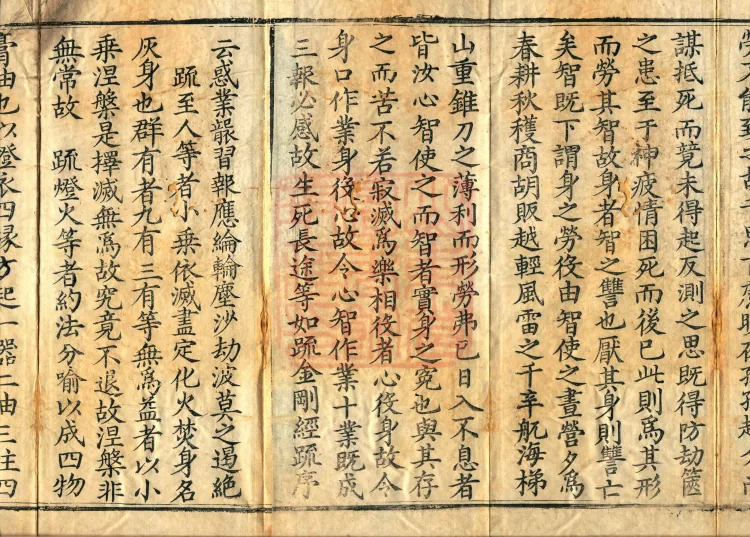 謀抵死而竟未得起反測之思既得防劫篋
之患至于神疲情困死而後已此則爲其形
而勞其智故身者智之讐也厭其身則讐亡
矣智既下謂身之勞役由智使之晝營夕爲
春耕秋穫商胡販越輕風雷之千辛航海梯
山重錐刀之薄利而形勞弗已日入不息者
皆汝心智使之而智者實身之寃也與其存
之而苦不若寂滅爲樂相役者心役身故令
身口作業身役心故令心智作業十業既成
三報必感故生死長途等如疏金剛經疏序
云惑業襲習報應綸輪塵沙劫波莫之遏絕
疏至人等者小乘依滅盡定化火焚身名
灰身也群有者九有三有等無爲蓋者以小
乘涅槃是擇滅無爲故究竟不退故涅槃非
無常故　疏燈火等者約法分喻以成四物
膏油也以燈衣四緣方起一器二油三炷四